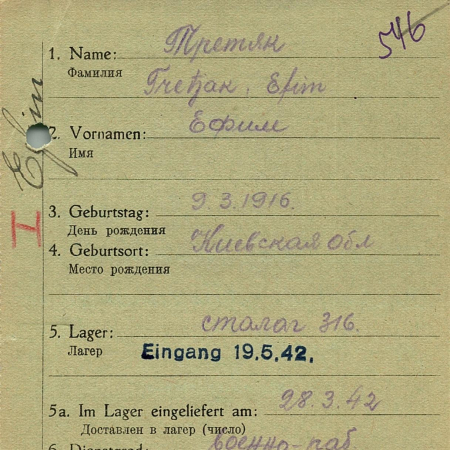 546
1. Name: Третяк
Фамилия
Efim
2. Vornamen: Ефим
Имя
Efim
3. Geburtstag: 9.3.1916.
День рождения
4. Geburtsort: Киевская обл
Место рождения
5. Lager: сталаг 316.
Лагер
Eingang 19.5.42.
5a. Im Lager eingeliefert am: 28.3.42
Доставлен в лагер (число)
военно-раб